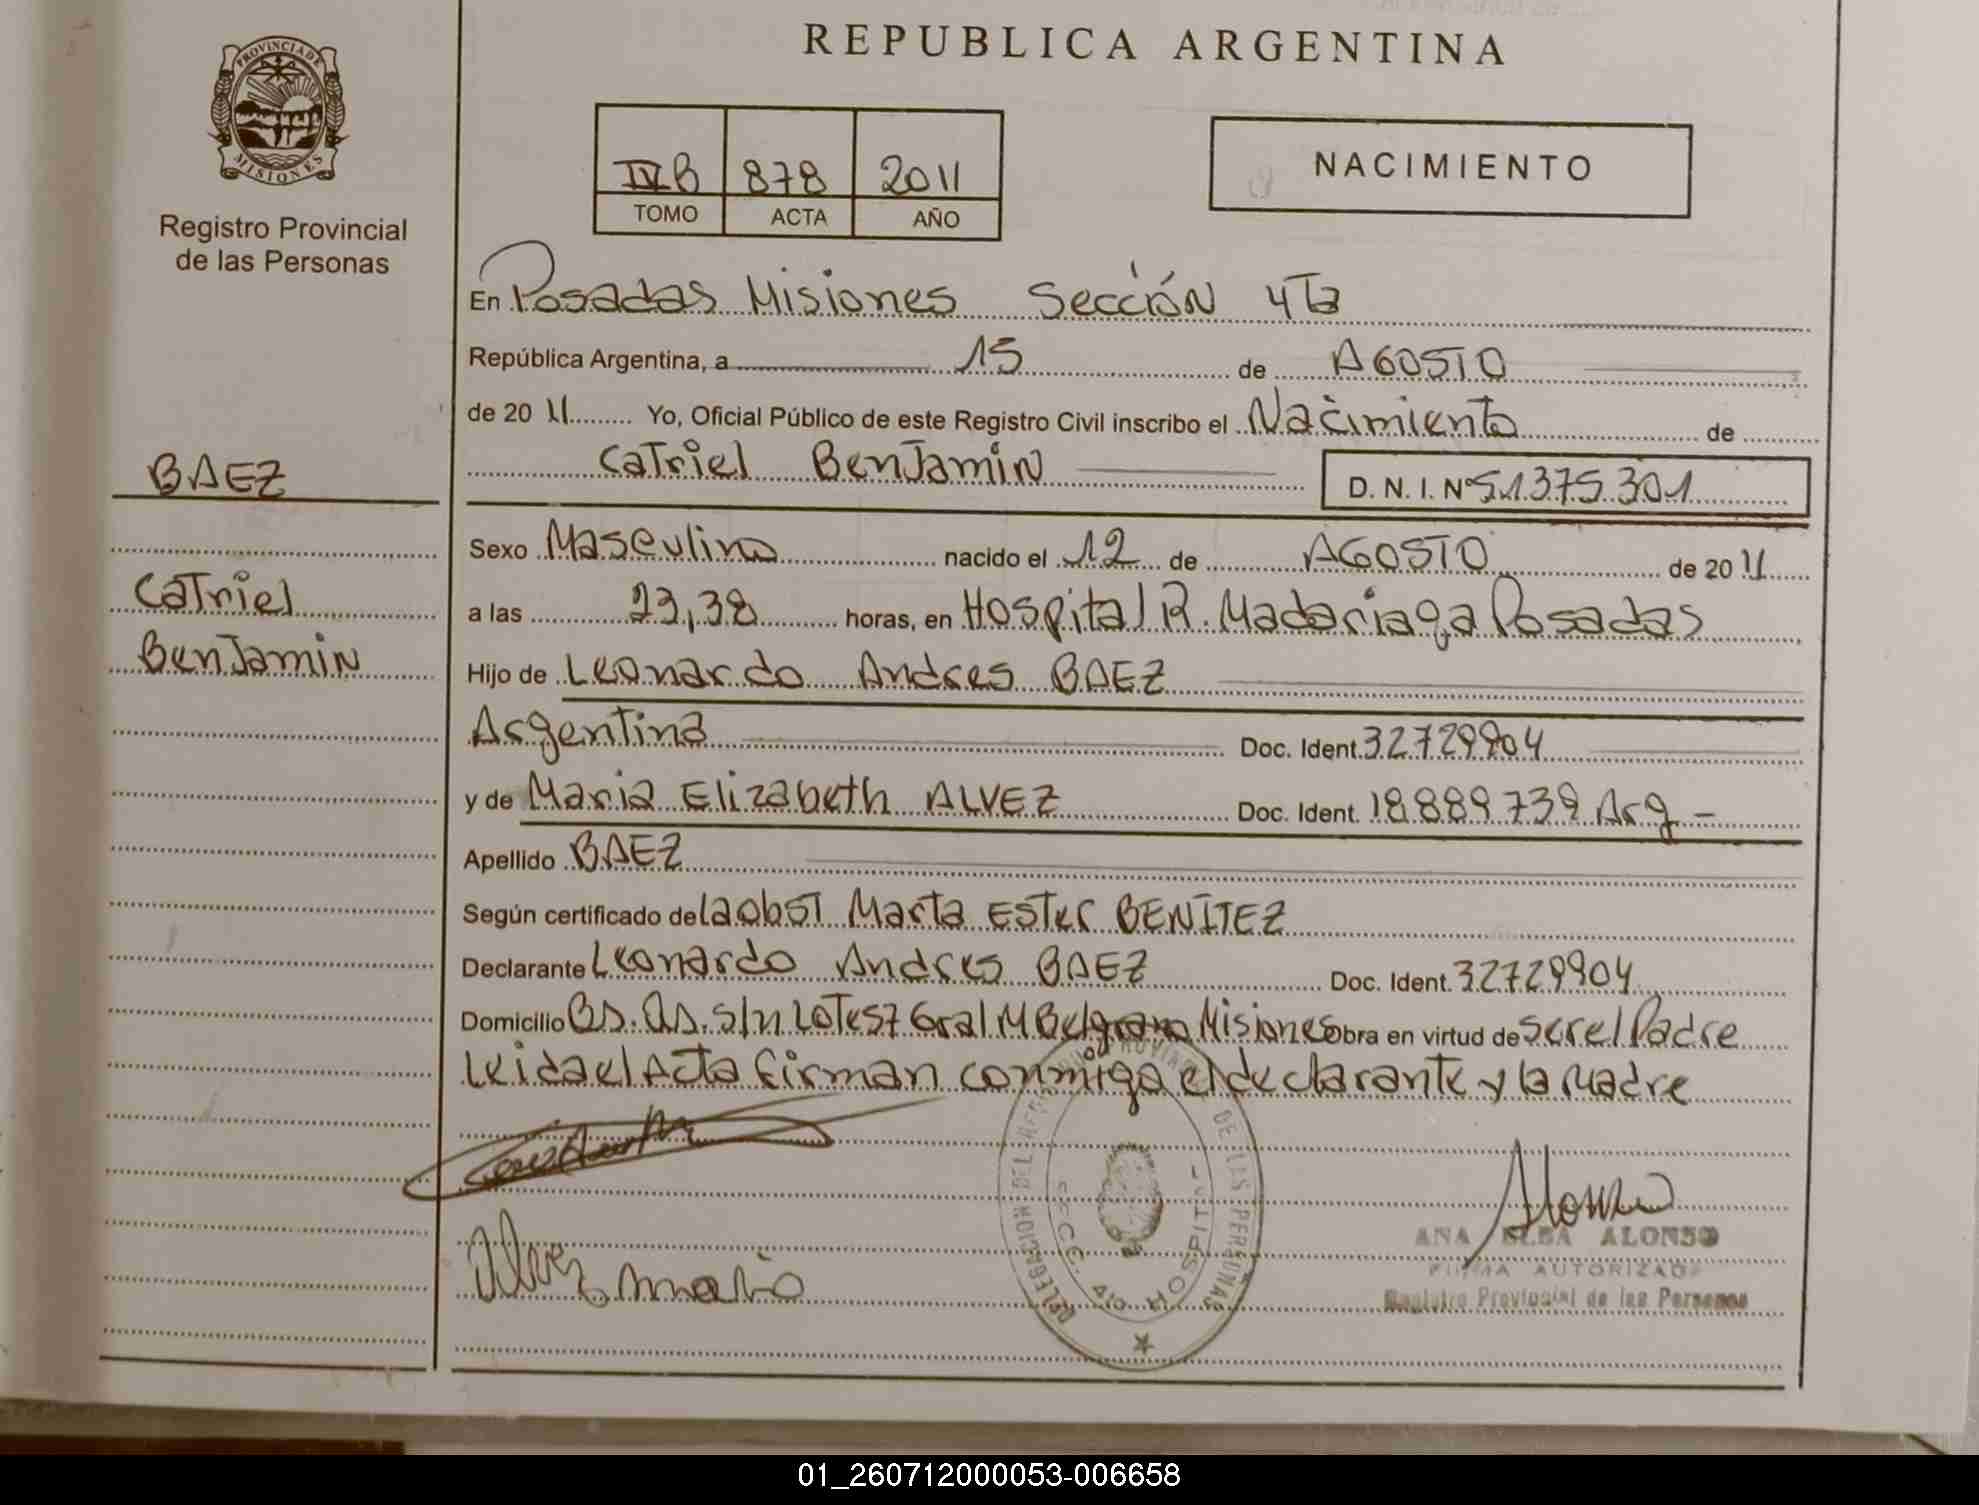 REPUBLICA ARGENTINA
PROVINCIA DE
MISIONES
Registro Provincial
de las Personas
IVB 878 2011
TOMO ACTA AÑO
NACIMIENTO
En Posadas Misiones Sección 4Ta
República Argentina, a 15 de AGOSTO
de 20 11 Yo, Oficial Público de este Registro Civil inscribo el Nacimiento de
Catriel Benjamin D. N. I. Nº 51375301
BAEZ
Catriel
Benjamin
Sexo Masculino nacido el 12 de AGOSTO de 20 11
a las 23,38 horas, en Hospital R. Madariaga Posadas
Hijo de Leonardo Andres BAEZ
Argentina Doc. Ident. 32729904
y de Maria Elizabeth ALVEZ Doc. Ident. 18889739 Arg -
Apellido BAEZ
Según certificado de la obst Marta Ester BENITEZ
Declarante Leonardo Andres BAEZ Doc. Ident. 32729904
Domicilio Bs. As. s/n Lote 57 Gral M Belgrano Misiones obra en virtud de ser el Padre
leida el Acta firman conmigo el declarante y la Madre
Alvez Maria
DELEGACION DEL REGISTRO PROVINCIAL DE LAS PERSONAS
SECC. 4º HOSPITAL
Alonso
ANA ELBA ALONSO
FIRMA AUTORIZADA
Registro Provincial de las Personas
01_260712000053-006658